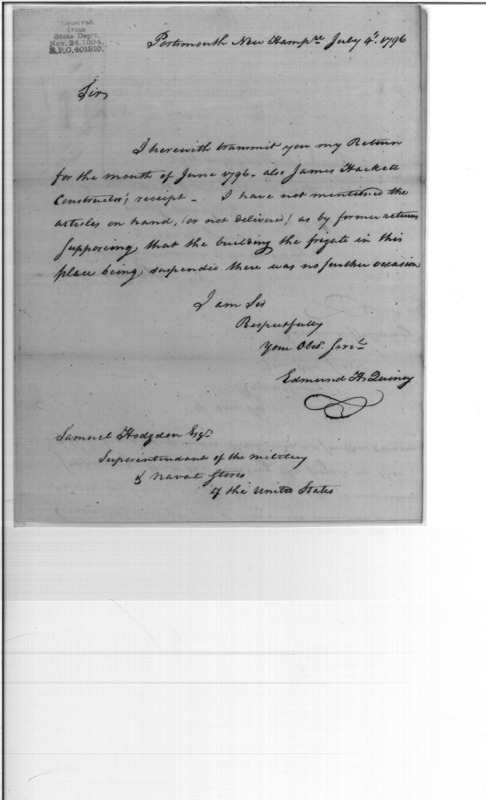 Received
from
State Dep't.
Nov. 24, 1894.
R.P.O. 401810.
Portsmouth New Hampre July 4th. 1796
Sir,
I herewith transmit you my Return
for the month of June 1796 - also James Hackett
Constructor's receipt - I have not mentioned the
articles on hand, (or not delivered) as by former returns
supposing that the building the frigate in this
place being suspended there was no further occasion
I am Sir
Respectfully
Your Obed. Servt.
Edmund H. Quincy
Samuel Hodgdon Esqr.
Superintendant of the military
& Naval Stores
of the United States